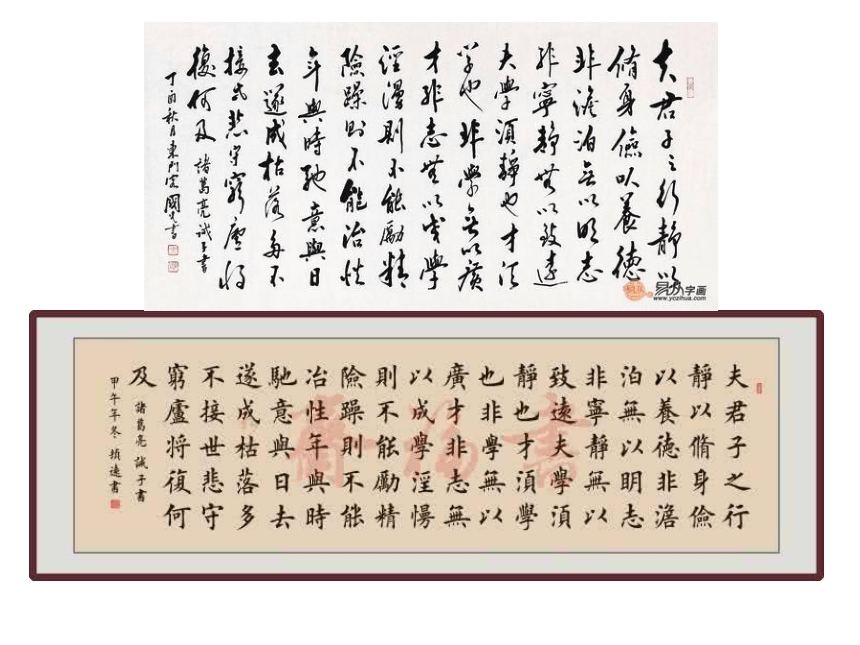 夫君子之行靜以
脩身儉以養德
非澹泊無以明志
非寧靜無以致遠
夫學須靜也才須
學也非學無以廣
才非志無以成學
淫漫則不能勵精
險躁則不能治性
年與時馳意與日
去遂成枯落多不
接世悲守窮廬將
復何及
諸葛亮誡子書
丁酉秋月東門
國
書
易从字画
www.yczihua.com
夫君子之行
靜以脩身儉
以養德非澹
泊無以明志
非寧靜無以
致遠夫學須
靜也才須學
也非學無以
廣才非志無
以成學淫慢
則不能勵精
險躁則不能
冶性年與時
馳意與日去
遂成枯落多
不接世悲守
窮廬将復何
及
諸葛亮誡子書
甲午年冬
遠書
書福齋